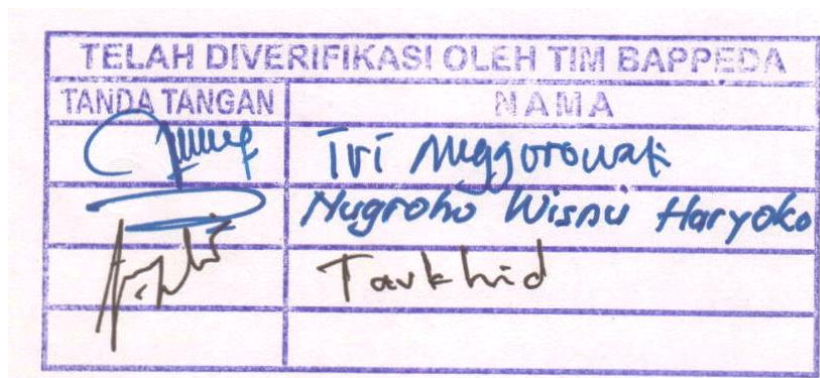 TELAH DIVERIFIKASI OLEH TIM BAPPEDA
TANDA TANGAN NAMA
Tri
Nugroho Wisnu Haryoko
Tavkhid